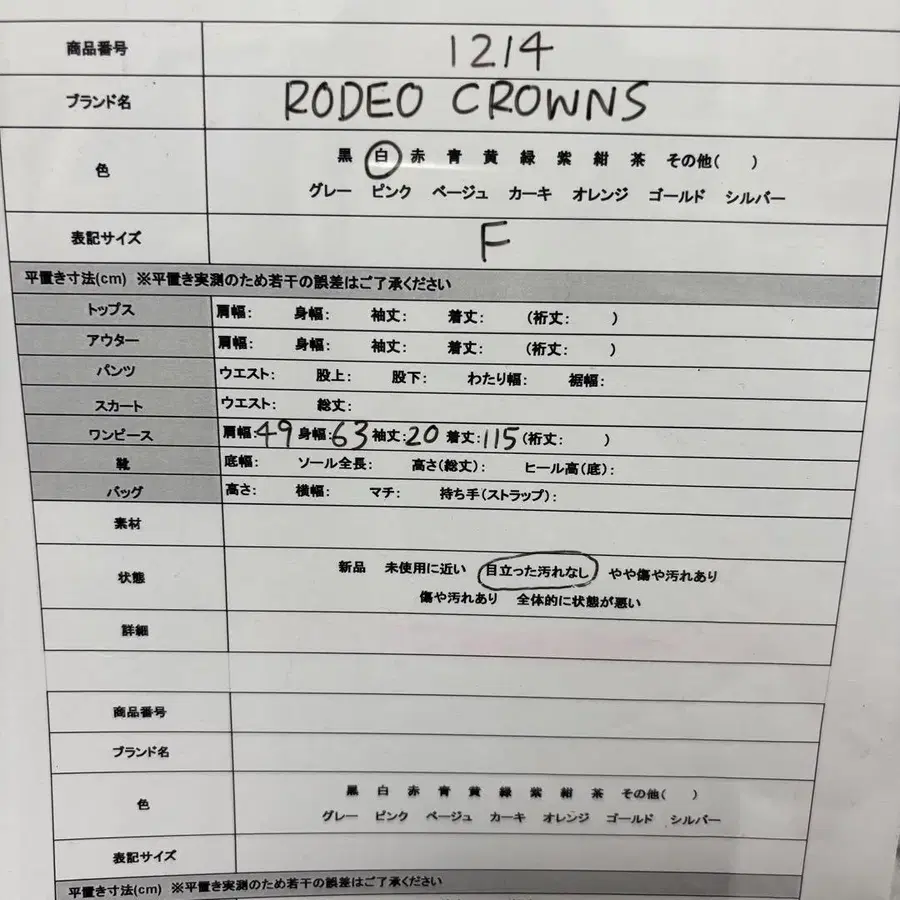 商品番号 1214
ブランド名 RODEO CROWNS
色 黒 白 赤 青 黄 緑 紫 紺 茶 その他( )
グレー ピンク ベージュ カーキ オレンジ ゴールド シルバー
表記サイズ F
平置き寸法(cm) ※平置き実測のため若干の誤差はご了承ください
トップス 肩幅: 身幅: 袖丈: 着丈: (裄丈: )
アウター 肩幅: 身幅: 袖丈: 着丈: (裄丈: )
パンツ ウエスト: 股上: 股下: わたり幅: 裾幅:
スカート ウエスト: 総丈:
ワンピース 肩幅:49 身幅:63 袖丈:20 着丈:115 (裄丈: )
靴 底幅: ソール全長: 高さ(総丈): ヒール高(底):
バッグ 高さ: 横幅: マチ: 持ち手(ストラップ):
素材
状態 新品 未使用に近い 目立った汚れなし やや傷や汚れあり
傷や汚れあり 全体的に状態が悪い
詳細
商品番号
ブランド名
色 黒 白 赤 青 黄 緑 紫 紺 茶 その他( )
グレー ピンク ベージュ カーキ オレンジ ゴールド シルバー
表記サイズ
平置き寸法(cm) ※平置き実測のため若干の誤差はご了承ください